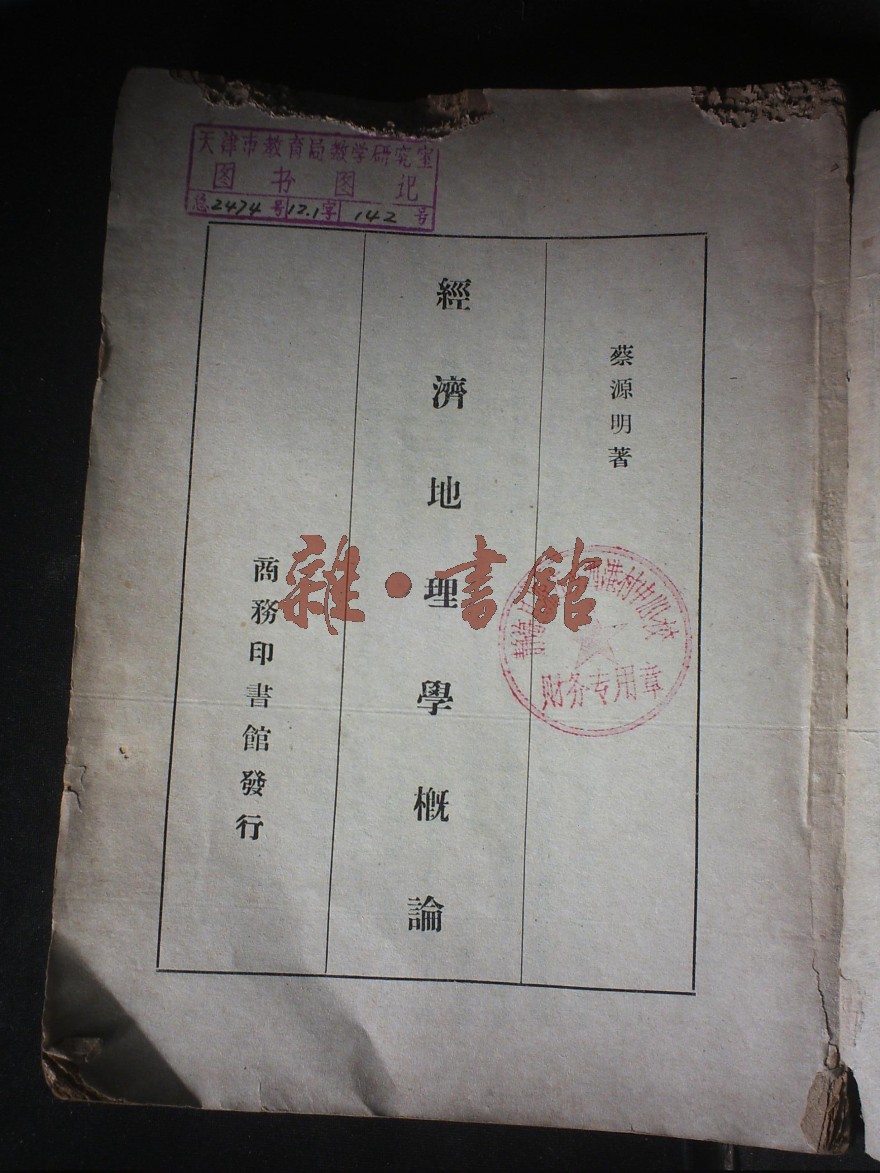 天津市教育局教学研究室
图书图记
总2474号17.1字142号
蔡源明著
經濟地理學概論
商務印書館發行
雜·書館
财务专用章